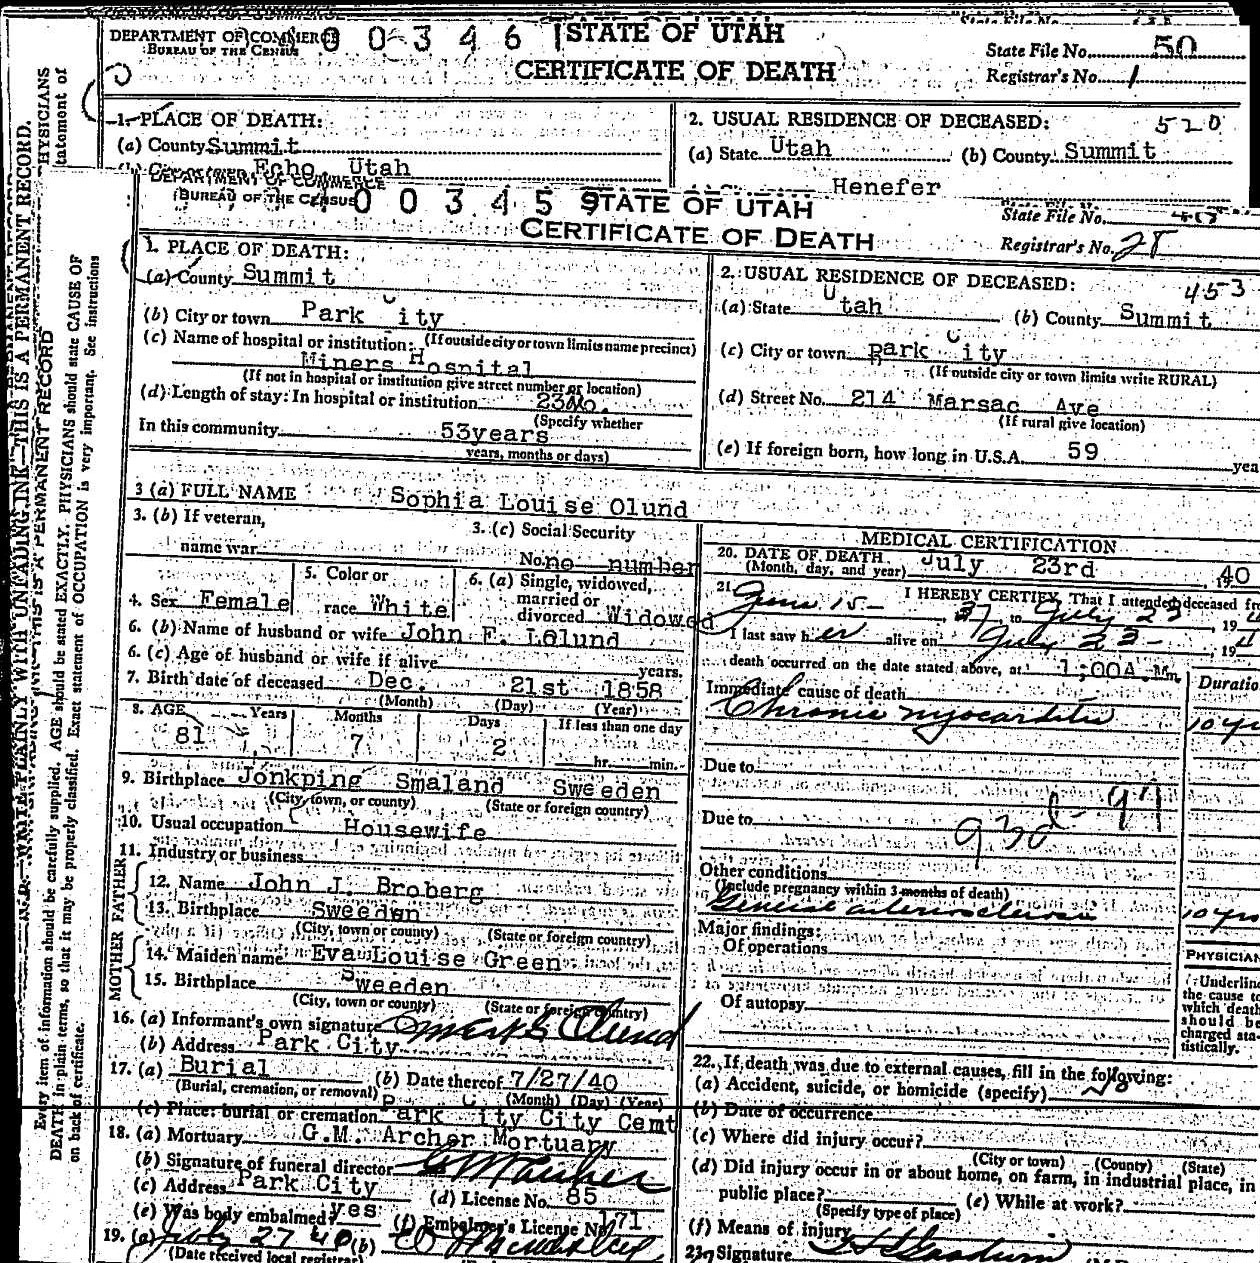 DEPARTMENT OF COMMERCE
BUREAU OF THE CENSUS
00346
STATE OF UTAH
CERTIFICATE OF DEATH
State File No. 50
Registrar's No. 1
1. PLACE OF DEATH:
(a) County Summit
Echo, Utah
2. USUAL RESIDENCE OF DECEASED: 520
(a) State Utah (b) County Summit
Henefer
DEPARTMENT OF COMMERCE
BUREAU OF THE CENSUS
00345
STATE OF UTAH
CERTIFICATE OF DEATH
State File No.
Registrar's No. 28
1. PLACE OF DEATH:
(a) County Summit
(b) City or town Park City
(If outside city or town limits name precinct)
(c) Name of hospital or institution:
Miners Hospital
(If not in hospital or institution give street number or location)
(d) Length of stay: In hospital or institution 23
(Specify whether
In this community 53years
years, months or days)
2. USUAL RESIDENCE OF DECEASED: 453
(a) State Utah (b) County Summit
(c) City or town Park City
(If outside city or town limits write RURAL)
(d) Street No. 214 Marsac Ave
(If rural give location)
(e) If foreign born, how long in U.S.A. 59 yea
3 (a) FULL NAME Sophia Louise Olund
3. (b) If veteran,
name war
3. (c) Social Security
No. no number
4. Sex Female
5. Color or
race White
6. (a) Single, widowed,
married or
divorced Widowed
6. (b) Name of husband or wife John E. Lolund
6. (c) Age of husband or wife if alive years.
7. Birth date of deceased Dec. 21st 1858
(Month) (Day) (Year)
8. AGE Years Months Days If less than one day
81 7 2 hr. min.
9. Birthplace Jonkping Smaland Sweeden
(City, town, or county) (State or foreign country)
10. Usual occupation Housewife
11. Industry or business
FATHER
12. Name John J. Broberg
13. Birthplace Sweeden
(City, town or county) (State or foreign country)
MOTHER
14. Maiden name Eva Louise Green
15. Birthplace Sweeden
(City, town or county) (State or foreign country)
16. (a) Informant's own signature Olund
(b) Address Park City
17. (a) Burial (b) Date thereof 7/27/40
(Burial, cremation, or removal) (Month) (Day) (Year)
(c) Place: burial or cremation Park City City Cemt
18. (a) Mortuary G.M. Archer Mortuary
(b) Signature of funeral director GM Archer
(c) Address Park City (d) License No. 85
(e) Was body embalmed? yes (f) Embalmer's License No. 171
19. (a) July 27 40 (b)
(Date received local registrar)
MEDICAL CERTIFICATION
20. DATE OF DEATH July 23rd, 1940
(Month, day, and year)
21. I HEREBY CERTIFY, That I attended deceased fr
June 15-, 37 to July 23, 194
I last saw her alive on July 23-, 194
death occurred on the date stated above, at 1;00A.M. m.
Immediate cause of death Duratio
Chronic myocarditis 10 yr
Due to
Due to
93d
Other conditions
(Include pregnancy within 3 months of death)
General arteriosclerosis 10 yr
Major findings:
Of operations
Of autopsy
PHYSICIAN
Underline
the cause to
which death
should be
charged sta-
tistically.
22. If death was due to external causes, fill in the following:
(a) Accident, suicide, or homicide (specify) No
(b) Date of occurrence
(c) Where did injury occur?
(City or town) (County) (State)
(d) Did injury occur in or about home, on farm, in industrial place, in
public place? (e) While at work?
(Specify type of place)
(f) Means of injury
23. Signature
WRITE PLAINLY WITH UNFADING INK—THIS IS A PERMANENT RECORD.
PHYSICIANS
tatement of
Every item of information should be carefully supplied. AGE should be stated EXACTLY. PHYSICIANS should state CAUSE OF
DEATH in plain terms, so that it may be properly classified. Exact statement of OCCUPATION is very important. See instructions
on back of certificate.